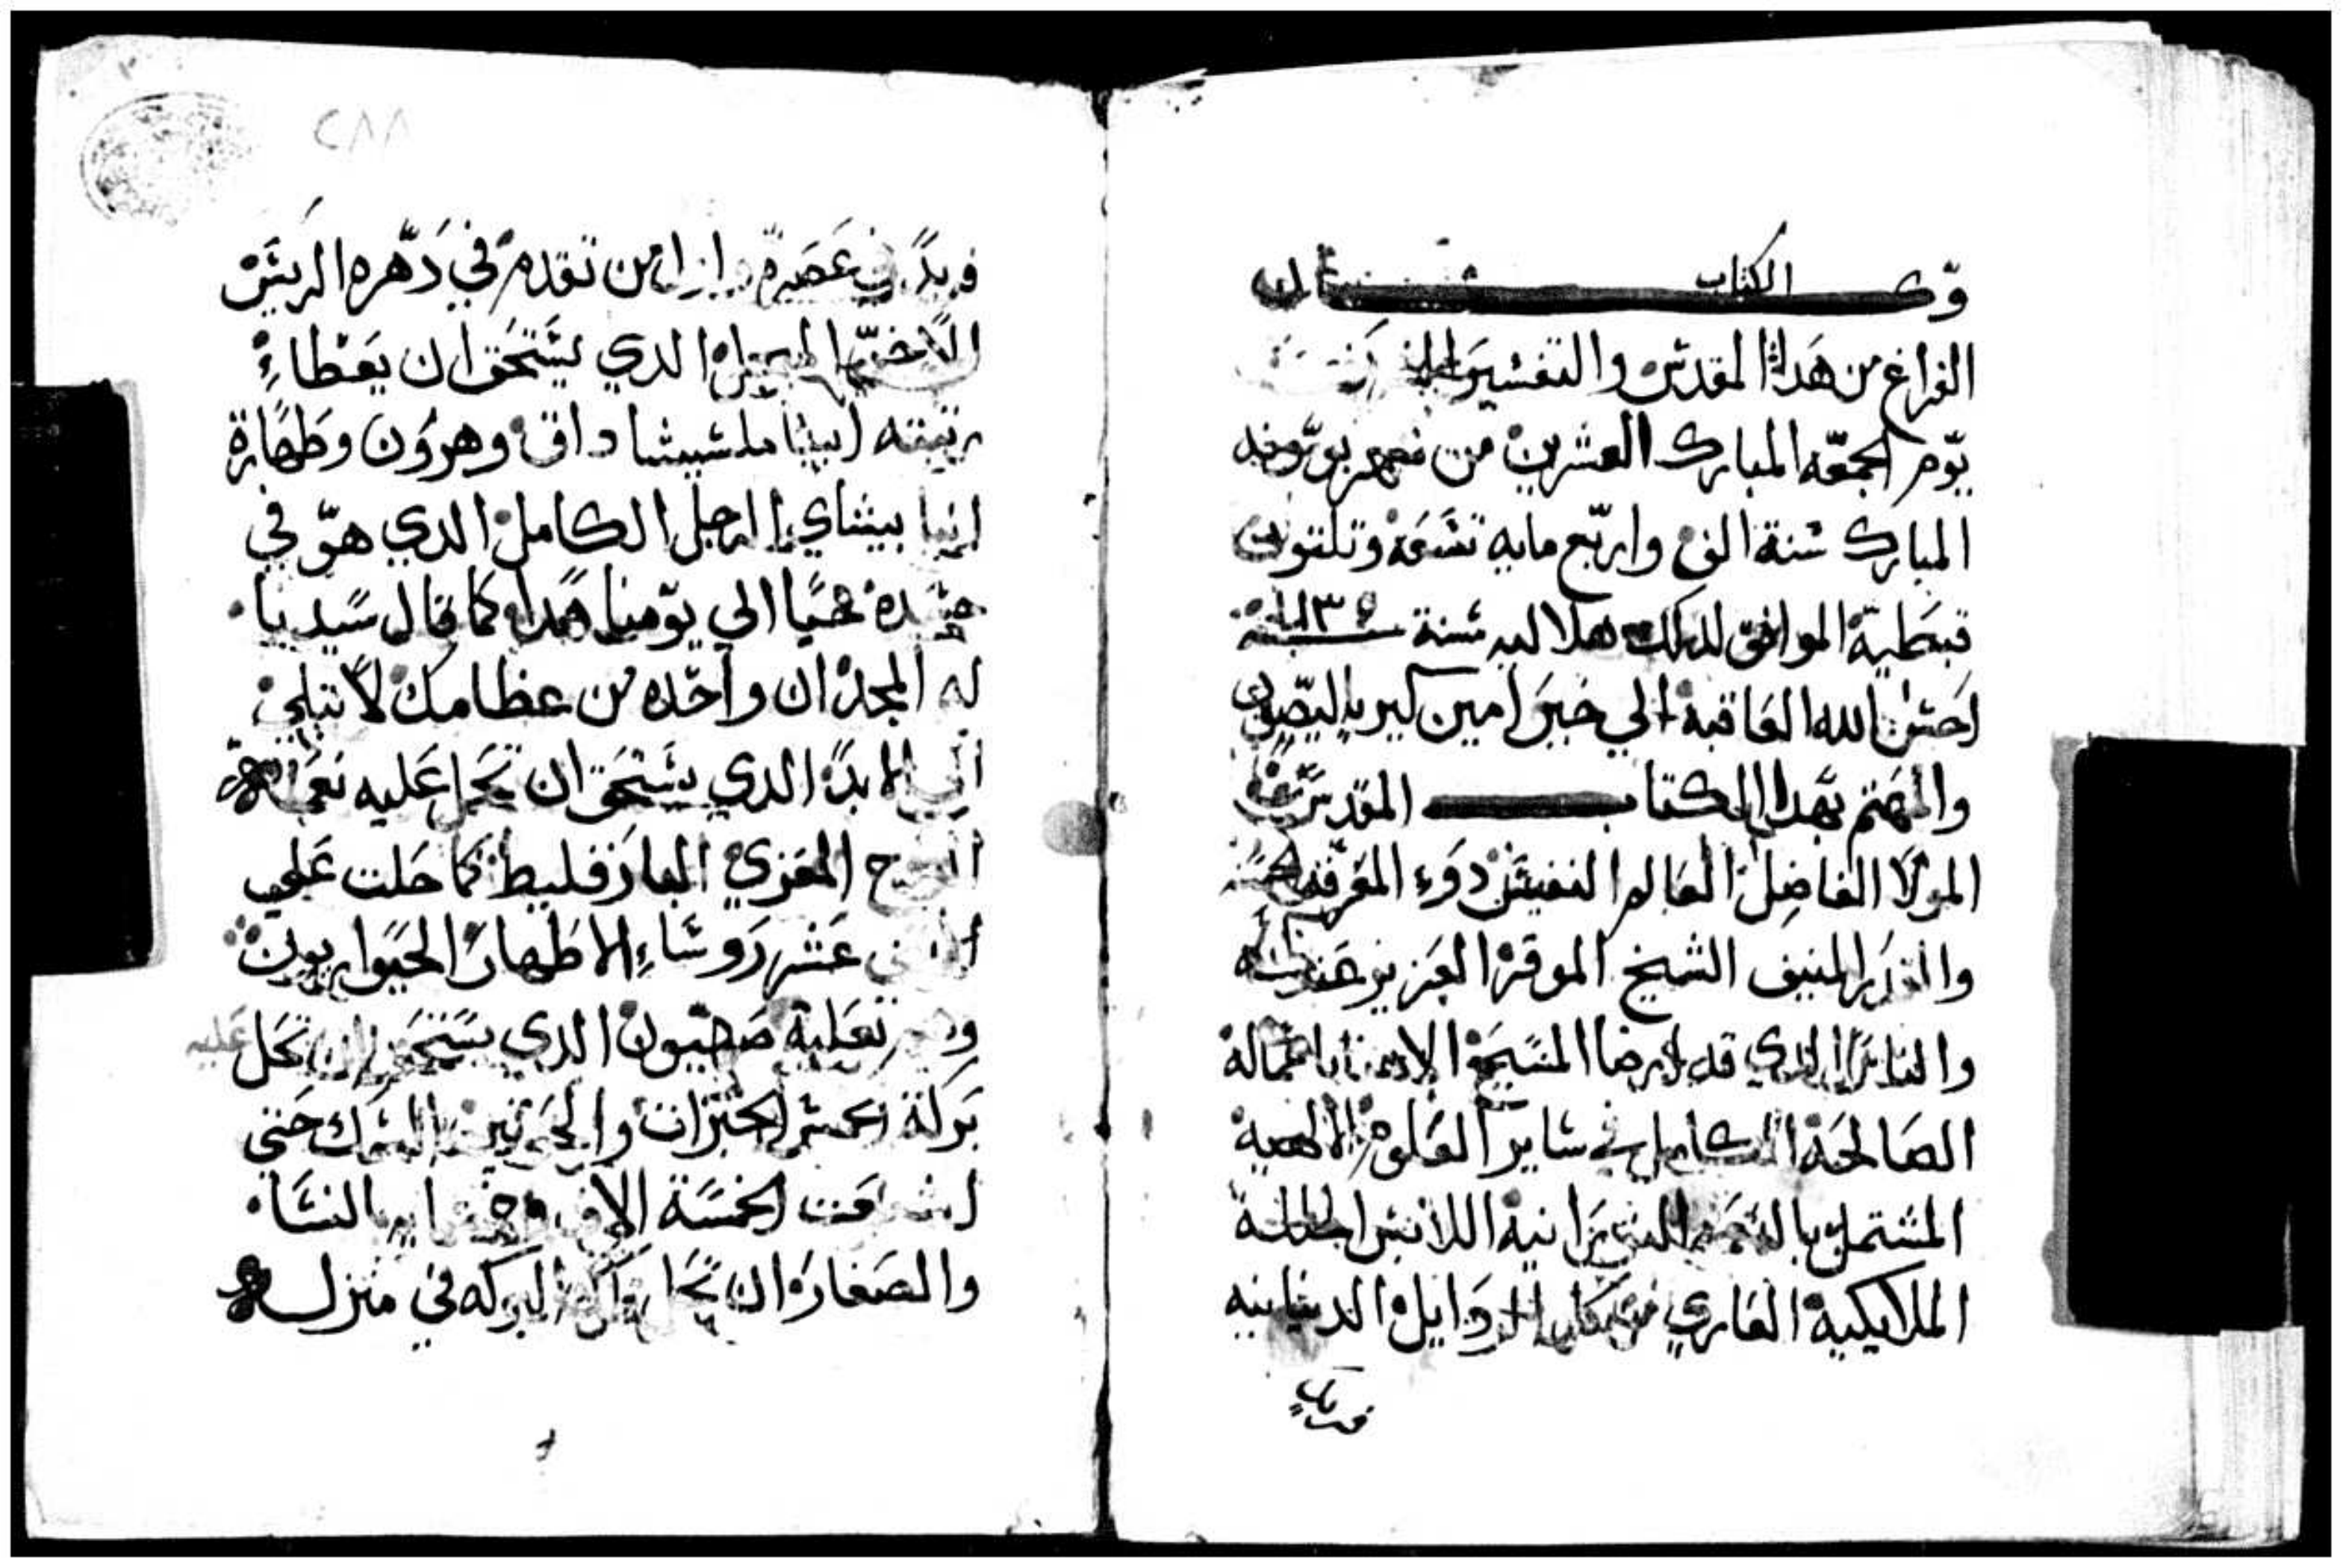 وكان
الكتاب
الفراغ من هدا المقدس والتفسير
يوم الجمعه المبارك العشرين من شهر بوونه
المبارك سنة الف واربع مايه تسعه وتلتون
قبطية الموافق لدلك هلاليه سنة
احسن الله العاقبة الي خير امين كيرياليصون
والمهتم بهدا الكتاب المقدس
المولا الفاضل العالم النفيس دوء المعرفه
والقدر المنيف الشيخ الموقر العزيز عند
والناس الدي قد ارضا المسيح الاهنا باعماله
الصالحة الكامل في ساير العلوم الالهية
المشتمل بالنعمه اللابس الحلة
الملايكية العاري من كل الردايل الدنيانيه
فريد
٢٨٨
فريدًا في عصره من تقدم في دهره الريس
الدي يستحق ان يعطاء
رتبته ابينا ملشيشاداق وهرون وطهارة
انبا بيشاي الرجل الكامل الدي هو في
جسده حيا الي يومنا هدا كما قال سيدنا
له المجد ان واحده من عظامك لا تبلي
الي الابد الدي يستحق ان تحل عليه نعمة
الروح المعزي البارقليط كما حلت علي
الاتني عشر روساء الاطهار الحواريون
وهي علية صهيون الدي يستحق ان تحل عليه
بركة الخمس الخبزات والحوتين السمك حتي
اشبعت الخمسة الاف النسا
والصغار ان تحل البركه في منزله